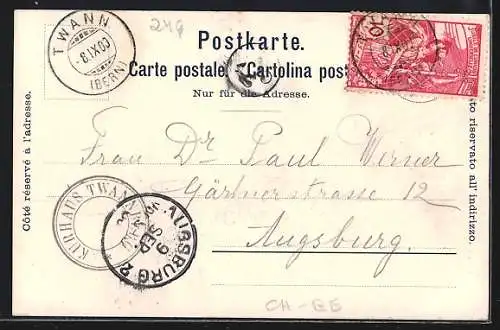 TWANN
-8.IX.00
(BERN)
249
Postkarte.
Carte postale. Cartolina post
Nur für die Adresse.
Côté réservé à l'adresse.
to riservato all' indirizzo.
Frau Dr Paul Werner
Gärtnerstrasse 12
Augsburg.
KURHAUS TWANN
AUGSBURG 2
9
SEP
CH-BE